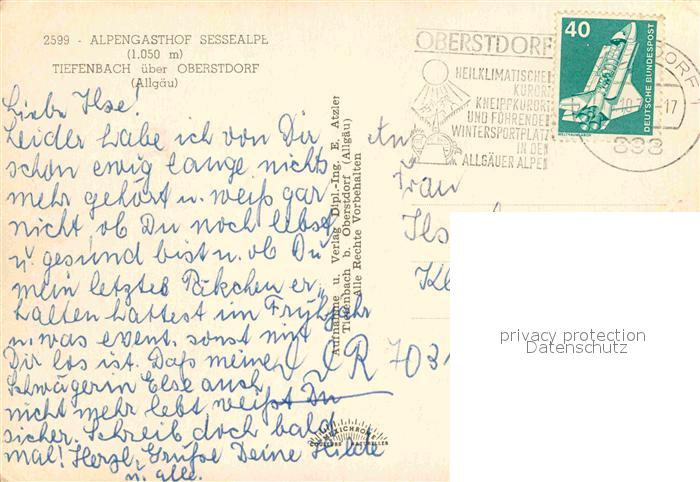 2599 - ALPENGASTHOF SESSEALPE
(1.050 m)
TIEFENBACH über OBERSTDORF
(Allgäu)
Liebe Ilse!
Leider habe ich von Dir
schon ewig lange nichts
mehr gehört u. weiß gar
nicht ob Du noch lebst
u. gesund bist u. ob Du
mein letztes Päkchen er-
halten hattest im Frühjahr
u. was event. sonst mit
Dir los ist. Daß meine
Schwägerin Else auch
nicht mehr lebt, weißt Du
sicher. Schreib doch bald
mal! Herzl. Grüße Deine Hilde
u. alle.
Aufnahme u. Verlag Dipl.-Ing. E. Atzler
Tiefenbach b. Oberstdorf (Allgäu)
Alle Rechte Vorbehalten
OBERSTDORF
HEILKLIMATISCHER
KURORT
KNEIPPKURORT
UND FÜHRENDER
WINTERSPORTPLATZ
IN DEN
ALLGÄUER ALPEN
40
DEUTSCHE BUNDESPOST
WELTRAUMLABOR
DORF
-17
898
An
Frau
Ils
Kl
DDR 703
privacy protection
Datenschutz